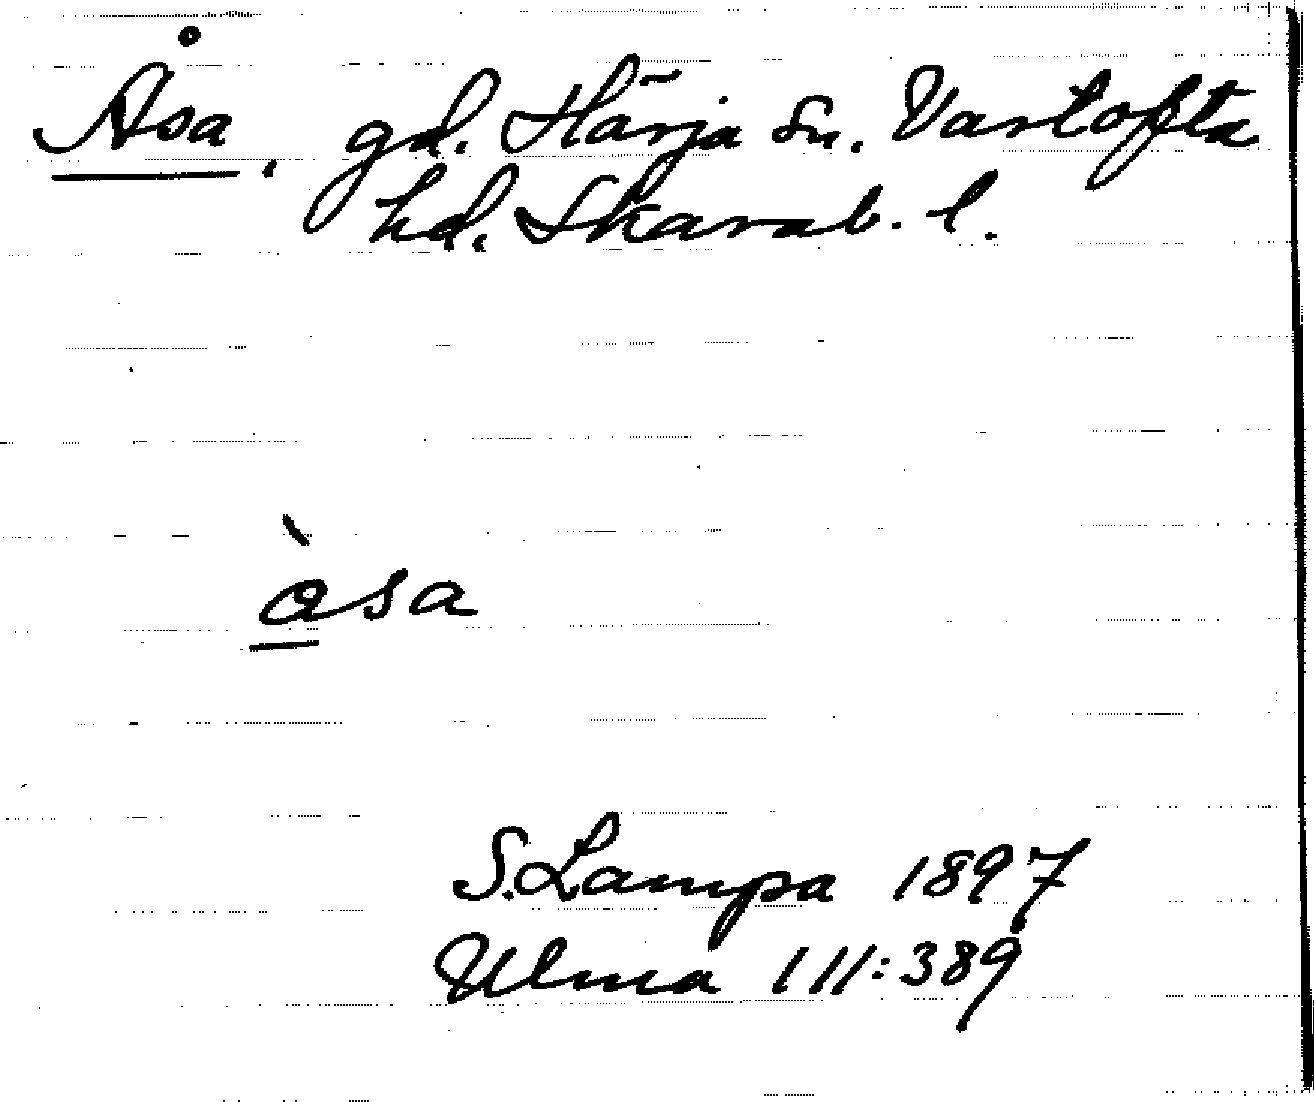 Åsa, gd. Härja sn. Vartofta
hd. Skarab. l.
àsa
S. Lampa 1897
Ulma 111:389